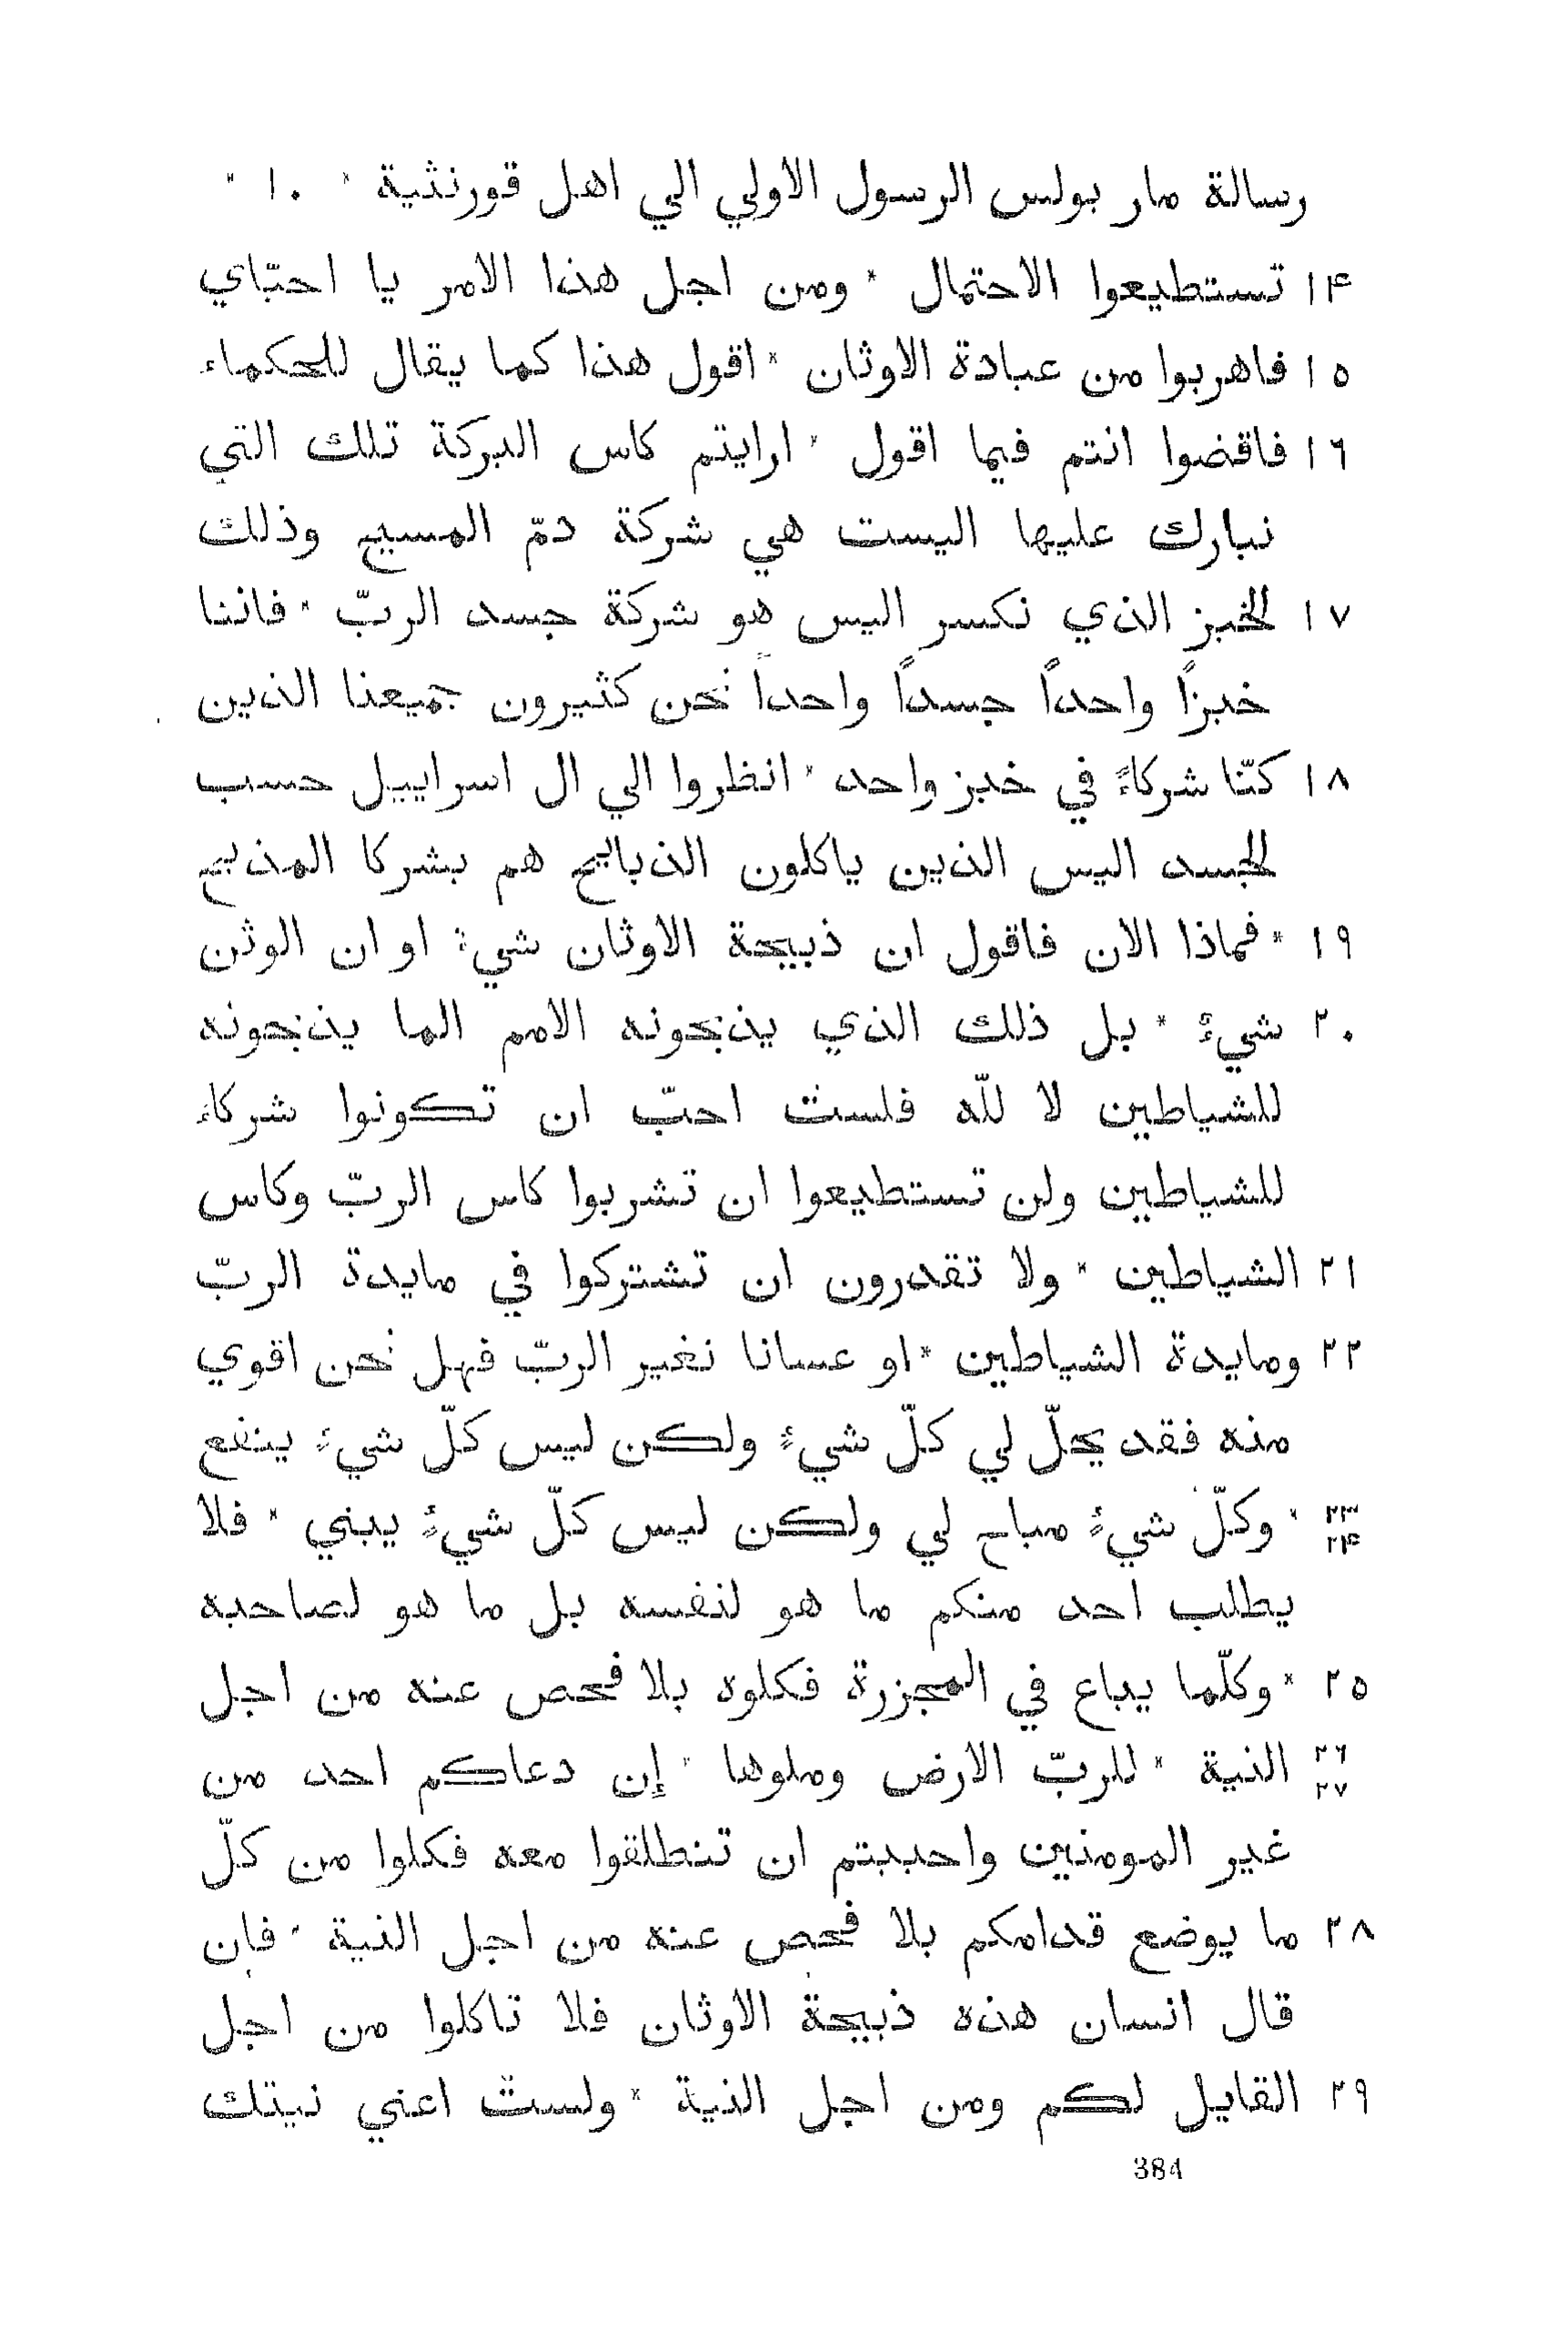 رسالة مار بولس الرسول الاولي الي اهل قورنثية * ١٠ *
١۴ تستطيعوا الاحتمال * ومن اجل هذا الامر يا احبّاي
١٥ فاهربوا من عبادة الاوثان * اقول هذا كما يقال للحكماء
١٦ فاقضوا انتم فيما اقول * ارايتم كاس البركة تلك التي
نبارك عليها اليست هي شركة دمّ المسيح وذلك
١٧ الخبز الذي نكسر اليس هو شركة جسد الربّ * فاننا
خبزًا واحداً جسداً واحداً نحن كثيرون جميعنا الذين
١٨ كنّا شركاءً في خبز واحد * انظروا الي ال اسراييل حسب
الجسد اليس الذين ياكلون الذبايح هم بشركا المذبح
١٩ * فماذا الان فاقول ان ذبيحة الاوثان شيءٌ او ان الوثن
٢٠ شيءٌ * بل ذلك الذي يذبحونه الامم انما يذبحونه
للشياطين لا للّه فلست احبّ ان تكونوا شركاء
للشياطين ولن تستطيعوا ان تشربوا كاس الربّ وكاس
٢١ الشياطين * ولا تقدرون ان تشتركوا في مايدة الربّ
٢٢ ومايدة الشياطين * او عسانا نغير الربّ فهل نحن اقوي
منه فقد يحلّ لي كلّ شيءٍ ولكن ليس كلّ شيءٍ ينفع
٢٣ * وكلّ شيءٍ مباح لي ولكن ليس كلّ شيءٍ يبني * فلا ٢۴
يطلب احد منكم ما هو لنفسه بل ما هو لصاحبه
٢٥ * وكلّما يباع في المجزرة فكلوه بلا فحص عنه من اجل
٢٦ النية * للربّ الارض وملوها * إن دعاكم احد من ٢٧
غير المومنين واحببتم ان تنطلقوا معه فكلوا من كلّ
٢٨ ما يوضع قدامكم بلا فحص عنه من اجل النية * فان
قال انسان هذه ذبيحة الاوثان فلا تاكلوا من اجل
٢٩ القايل لكم ومن اجل النية * ولست اعني نيتك
384